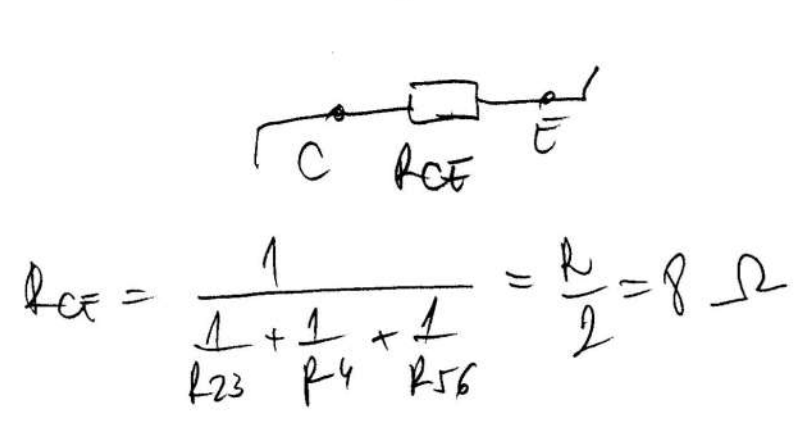 C R_CE E
R_CE = 1 / (1/R23 + 1/R4 + 1/R56) = R/2 = 8 Ω